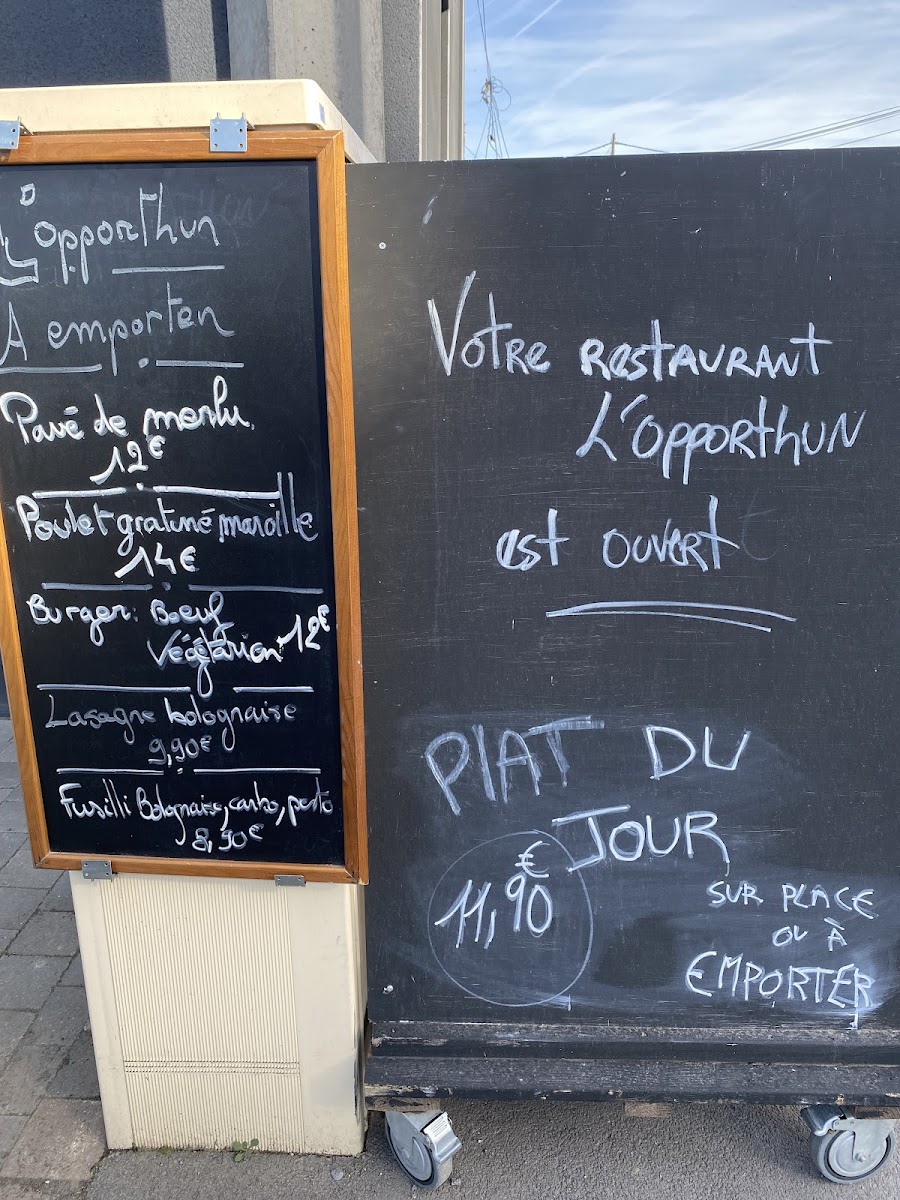 L'Opporthun
A emporter
Pavé de merlu
12€
Poulet gratiné maroille
14€
Burger: Boeuf
Végétarien 12€
Lasagne bolognaise
9,90€
Fusilli Bolognaise, carbo, pesto
8,90€
Votre restaurant
L'Opporthun
est ouvert
PLAT DU
JOUR
11,90€
SUR PLACE
OU À
EMPORTER